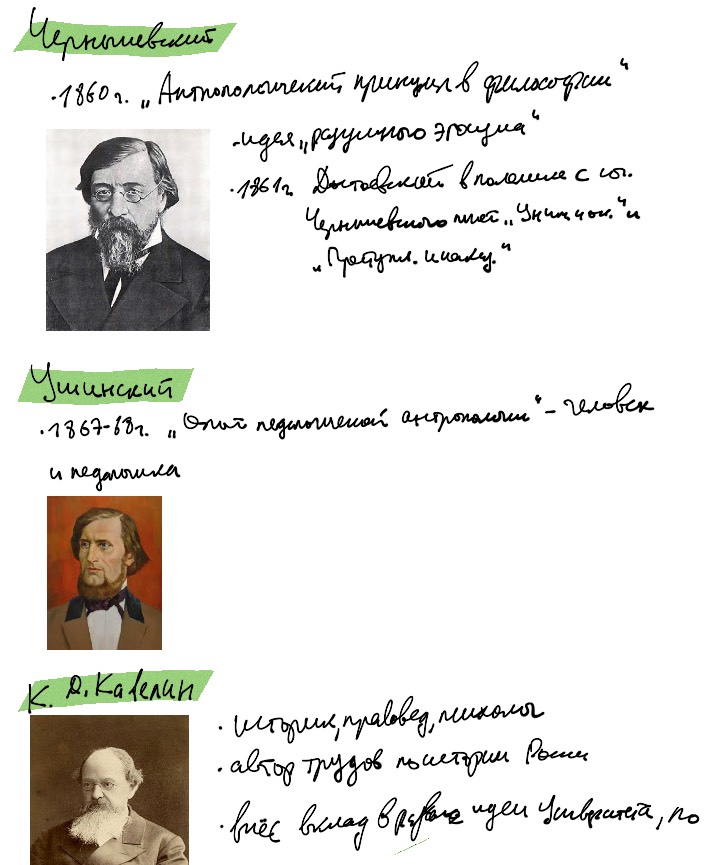 Чернышевский
·1860г. „Антропологический принцип в философии“
·идея „разумного эгоизма“
·1861г. Достоевский в полемике с
Чернышевского пишет „Униж. и оск.“ и
„Преступл. и наказ.“
Ушинский
·1867-68г. „Опыт педагогической антропологии“ – человек
и педагогика
К. Д. Кавелин
· историк, правовед, психолог
· автор трудов по истории России
· внёс вклад в идеи Университета, по